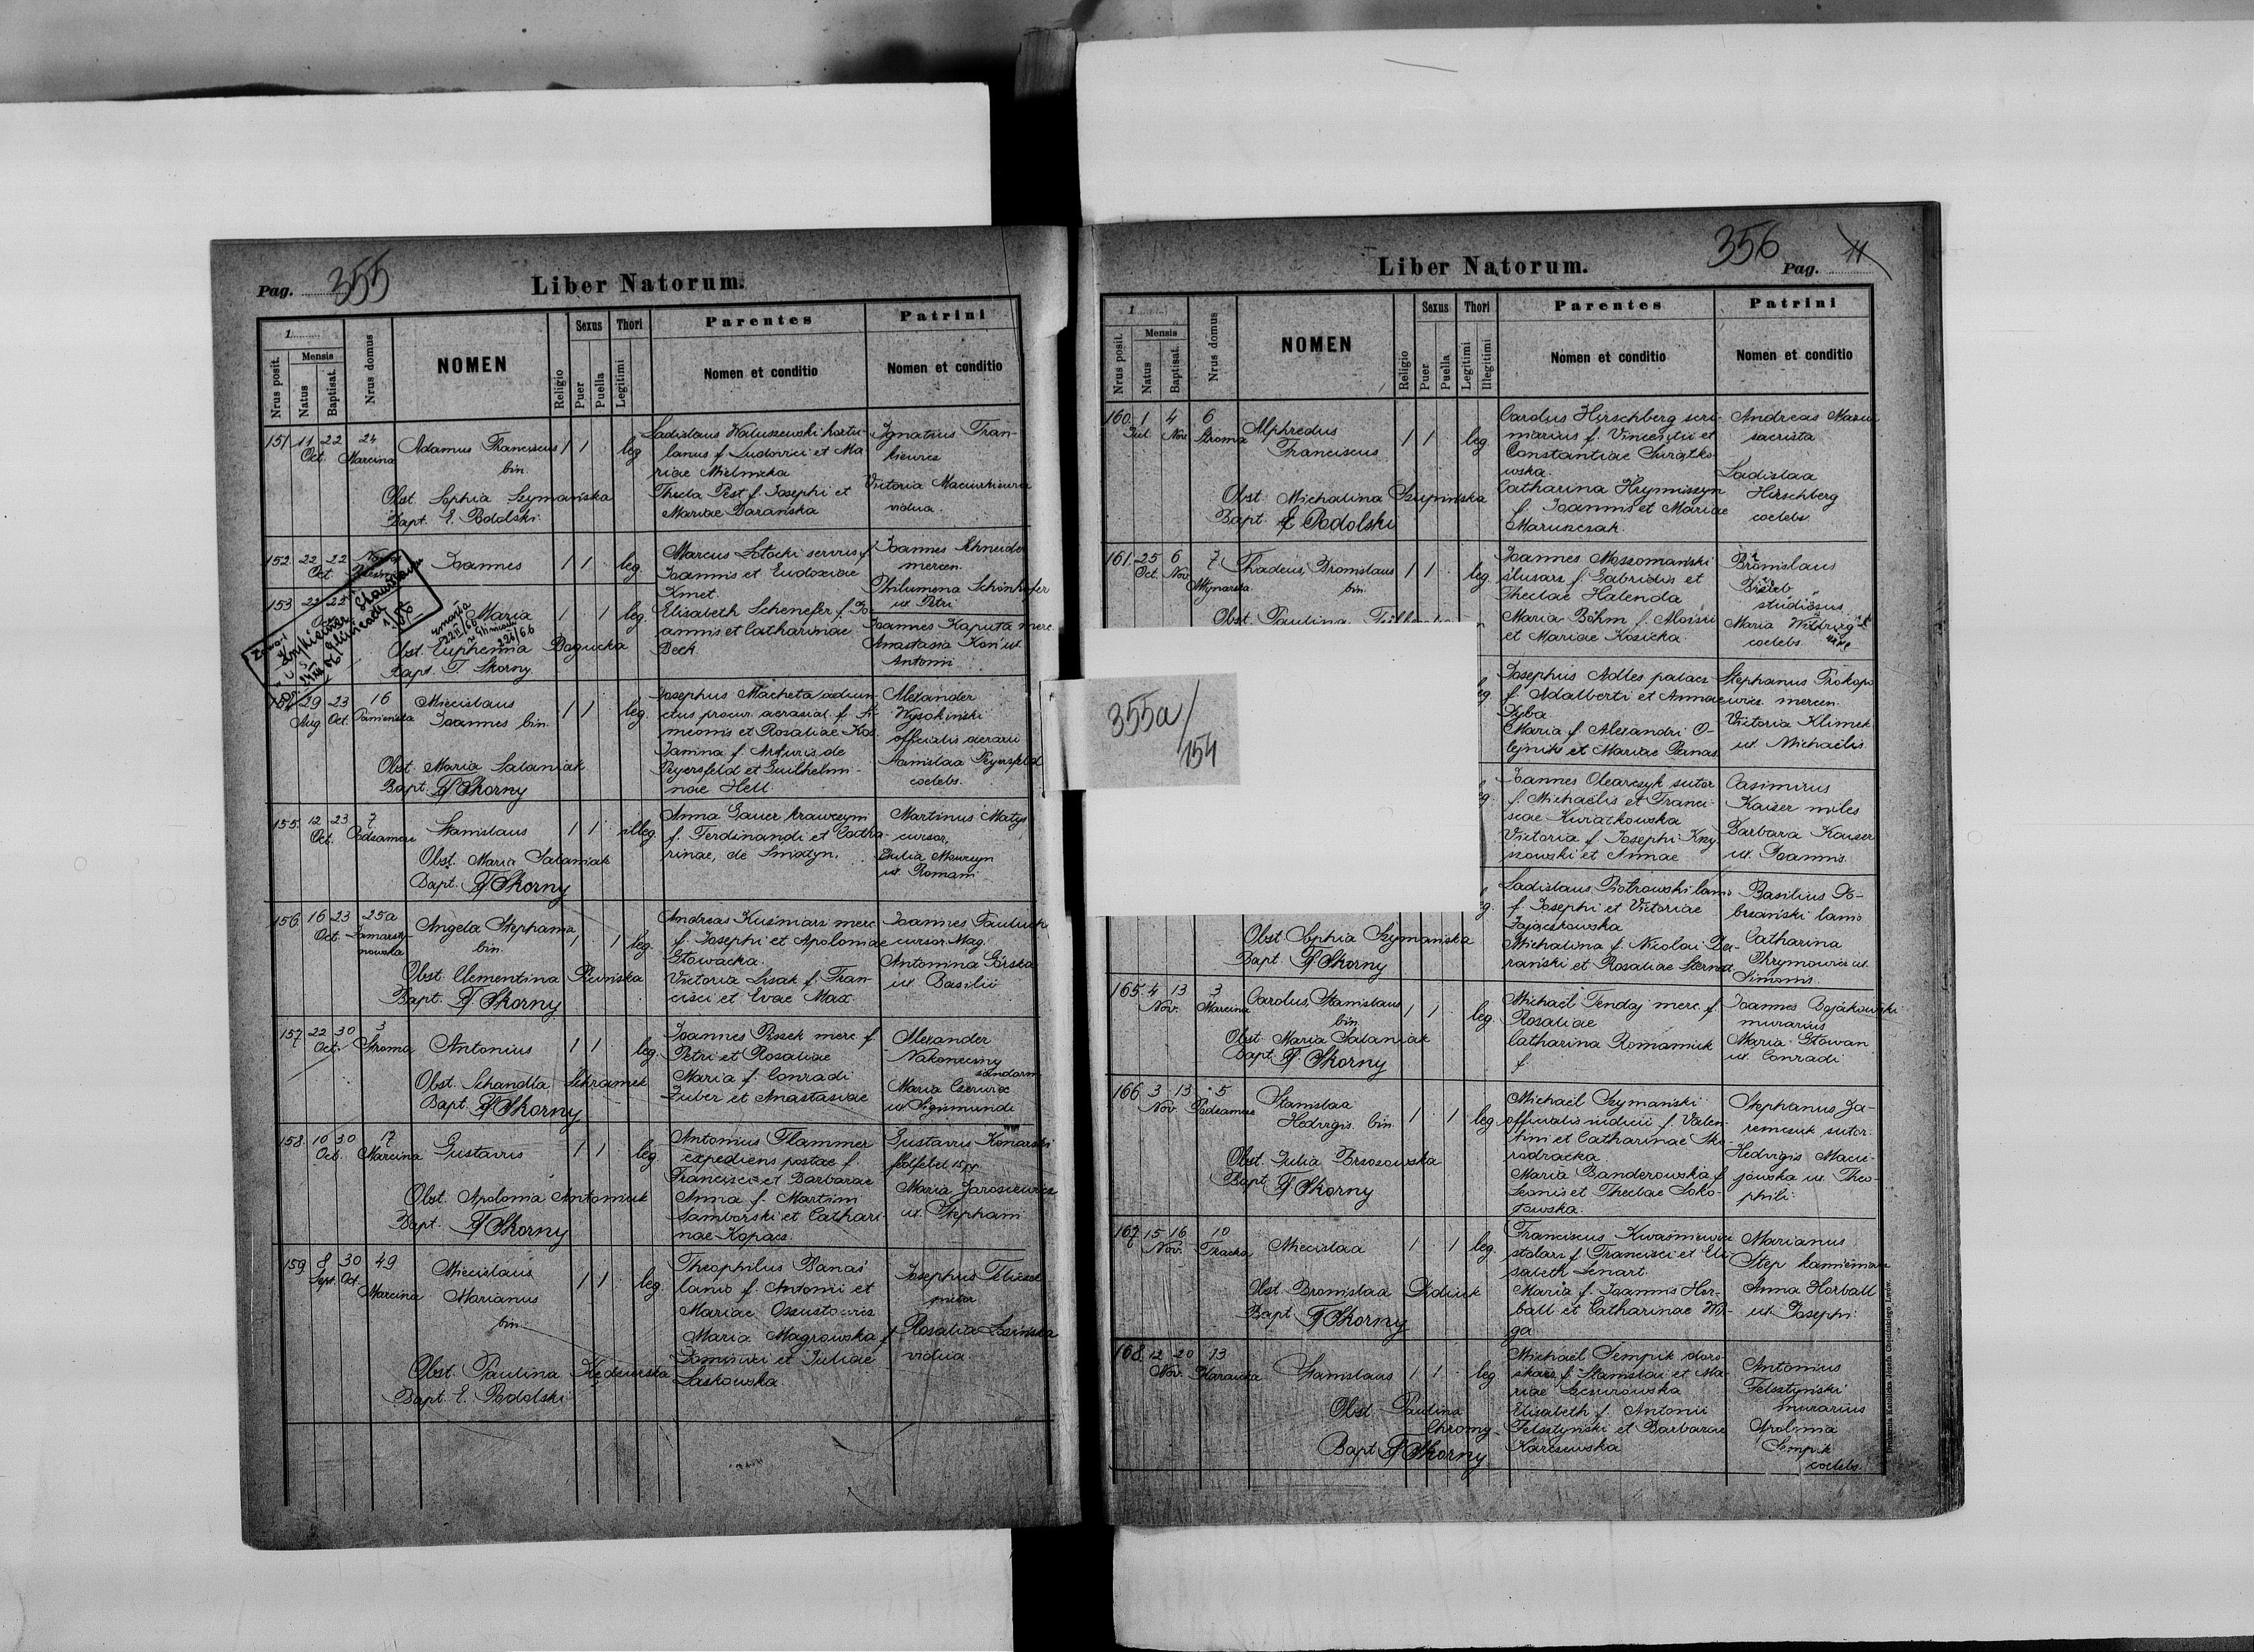 Pag. 355
Liber Natorum.
1
Nrus posit.
Mensis
Natus
Baptisat.
Nrus domus
NOMEN
Religio
Sexus
Puer
Puella
Thori
Legitimi
Parentes
Nomen et conditio
Patrini
Nomen et conditio
151 11 22 Oct. 24 Marcina
Adamus Franciscus
bin.
1 1 leg
Obst. Sophia Szymańska
Bapt. E. Podolski
Ladislaus Waluszewski hortu-
lanus f. Ludovici et Ma-
riae Mielnicka
Thecla Pest f. Josephi et
Mariae Barańska
Ignatius Fran-
kiewicz
Victoria Maciurkiewicz
vidua.
152. 22 22 Oct
Joannes
1 1 leg.
Marcus Łotocki servus f
Joannis et Eudoxiae
Kmet
Joannes Schneider
mercen.
Philumena Schönhofer
ux. Petri
153 22 22 Oct
Maria
1 1 leg.
Obst. Euphemia Bagucka
Bapt. F. Skorny
Elisabeth Schenefer f. Jo-
annis et Catharinae
Beck
Joannes Kaputa merc.
Anastasia Koń ux.
Antonii
154 29 Aug 23 Oct. 16
Miecislaus
Joannes bin.
1 1 leg.
Obst. Maria Sataniak
Bapt. F. Skorny
Josephus Macheta adiun-
ctus procur. aerarial. f. Si-
meonis et Rosaliae Kos.
Janina f. Arturis de
Peyersfeld et Guilhelmi-
nae Hell
Alexander
Wysokiński
officialis aerarii
Stanislaa Peyersfeld
coelebs.
155. 12 23 Oct. 7 Podzamcze
Stanislaus
1 1 illeg.
Obst. Maria Sataniak
Bapt. F. Skorny
Anna Gauer krawczyni
f. Ferdinandi et Catha-
rinae, de Sniatyn.
Martinus Matys
cursor,
Julia Mowczyn
ux. Romani
156. 16 23 Oct. 25a Zamarsty-
nowska
Angela Stephania
bin.
1 1 leg.
Obst. Clementina
Bapt. F. Skorny
Andreas Kuśniarz merc
f. Josephi et Apoloniae
Głowacka.
Victoria Lisak f. Fran-
cisci et Evae Max
Joannes Pauluch
cursor Mag.
Antonina Górska
ux. Basilii
157 22 30 Oct. 3 Stroma
Antonius
1 1 leg.
Obst. Schandla Schramek
Bapt. F. Skorny
Joannes Pissek merc. f
Petri et Rosaliae
Maria f. Conradi
Zuber et Anastasiae
Alexander
Nakoneczny
żandarm
Maria Czerwice
ux. Sigismundi
158. 10 30 Oct. 17 Marcina
Gustavus
1 1 leg
Obst. Apolonia Antoniuk
Bapt. F. Skorny
Antonius Flammer
expediens postae f.
Francisci et Barbarae
Anna f. Martini
Samborski et Cathari-
nae Kopacz
Gustavus Konarski
feldfebel 15 pp
Maria Jarosiewicz
ux. Stephani
159 8 Sept. 30 Oct. 49 Marcina
Miecislaus
Marianus
bin.
1 1 leg.
Obst. Paulina Kędzierska
Bapt. E. Podolski
Theophilus Banaś
lanio f. Antonii et
Mariae Ossustowicz
Maria Magrowska f.
Dominici et Juliae
Laskowska
Josephus
pistor
Rosalia Łosińska
vidua
355a/
154
356
Pag. 11
Liber Natorum.
1
Nrus posit.
Mensis
Natus
Baptisat.
Nrus domus
NOMEN
Religio
Sexus
Puer
Puella
Thori
Legitimi
Illegitimi
Parentes
Nomen et conditio
Patrini
Nomen et conditio
160. 1 Jul 4 Nov 6 Stroma
Alphredus
Franciscus
1 1 leg.
Obst. Michalina
Bapt. E. Podolski
Carolus Hirschberg scri-
niarius f. Vincentii et
Constantiae Swiątko-
wska.
Catharina Hryniszyn
f. Joannis et Mariae
Maruszczak.
Andreas Mazur
sacrista
Ladislaa
Hirschberg
coelebs.
161. 25 Oct. 6 Nov. 7 Młynarska
Thadeus, Bronislaus
bin.
1 1 leg.
Obst. Paulina
Joannes Moszomański
ślusarz f. Gabrielis et
Theclae Halenda
Maria Böhm f. Aloisii
et Mariae Kosicka
Bronislaus
studiosus.
Maria
coelebs.
Josephus Adles palacz
f. Adalberti et Annae
Zyba
Maria f. Alexandri O-
lejnik et Mariae Panas
Stephanus Prokopo-
wicz mercen.
Victoria Klimek
ux. Michaelis
Joannes Olearczyk sutor
f. Michaelis et Franci-
scae Kwiatkowska
Victoria f. Josephi Krzy-
szowski et Annae
Casimirus
Kaiser miles
Barbara Kaiser
ux. Joannis.
Obst Sophia Szymańska
Bapt F. Skorny
Ladislaus Piotrowski lanio
f. Josephi et Victoriae
Zajączkowska
Michalina f. Nicolai Ba-
rański et Rosaliae Sternat
Basilius Do-
brzański lanio
Catharina
ux.
Simonis.
165. 4 13 Nov. 3 Marcina
Carolus, Stanislaus
bin.
1 1 leg.
Obst. Maria Sataniak
Bapt F. Skorny
Michaël Fendaj merc. f.
Rosaliae
Catharina Romaniuk
f.
Joannes Bojakowski
murarius
Maria Głowan
ux. Conradi
166 3 13 Nov. 5 Podzamcze
Stanislaa
Hedvigis bin.
1 1 leg.
Obst. Julia Brzozowska
Bapt. F. Skorny
Michaël Szymański
officialis iudicii f. Valen-
tini et Catharinae Sko-
rodracka.
Maria Banderowska f.
Leonis et Theclae Soko-
łowska.
Stephanus Ja-
remczuk sutor.
Hedvigis Macie-
jowska ux. Theo-
phili
167 15 16 Nov. 10 Tkacka
Miecislaa
1 1 leg.
Obst. Bronislaa Didiuk
Bapt F. Skorny
Franciscus Kwaśniewicz
stolarz f. Francisci et Eli-
sabeth Lenart.
Maria f. Joannis Hor-
ball et Catharinae Wil-
ga
Marianus
Step kamieniarz
Anna Horball
ux. Josephi
168. 12 20 Nov. 13
Stanislaus
1 1 leg
Obst. Paulina
Chromy
Bapt F. Skorny
Michaël Sempik doro-
żkarz f. Stanislai et Ma-
riae
Elisabeth f. Antonii
Felsztyński et Barbarae
Karczewska
Antonius
Felsztyński
murarius
Apolonia
Sempik
coelebs.
Drukarnia Katolicka Józefa Chęcińskiego Lwów.